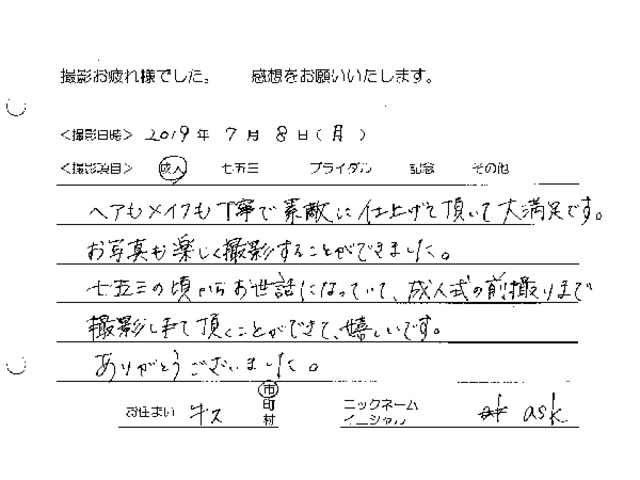 撮影お疲れ様でした。 感想をお願いいたします。
<撮影日時> 2019 年 7 月 8 日 ( 月 )
<撮影項目> 成人 七五三 ブライダル 記念 その他
ヘアもメイクも丁寧で素敵に仕上げて頂いて大満足です。
お写真も楽しく撮影することができました。
七五三の頃からお世話になっていて、成人式の前撮りまで
撮影しまて頂くことができて、嬉しいです。
ありがとうございました。
お住まい 市町村 ニックネーム イニシャル ask